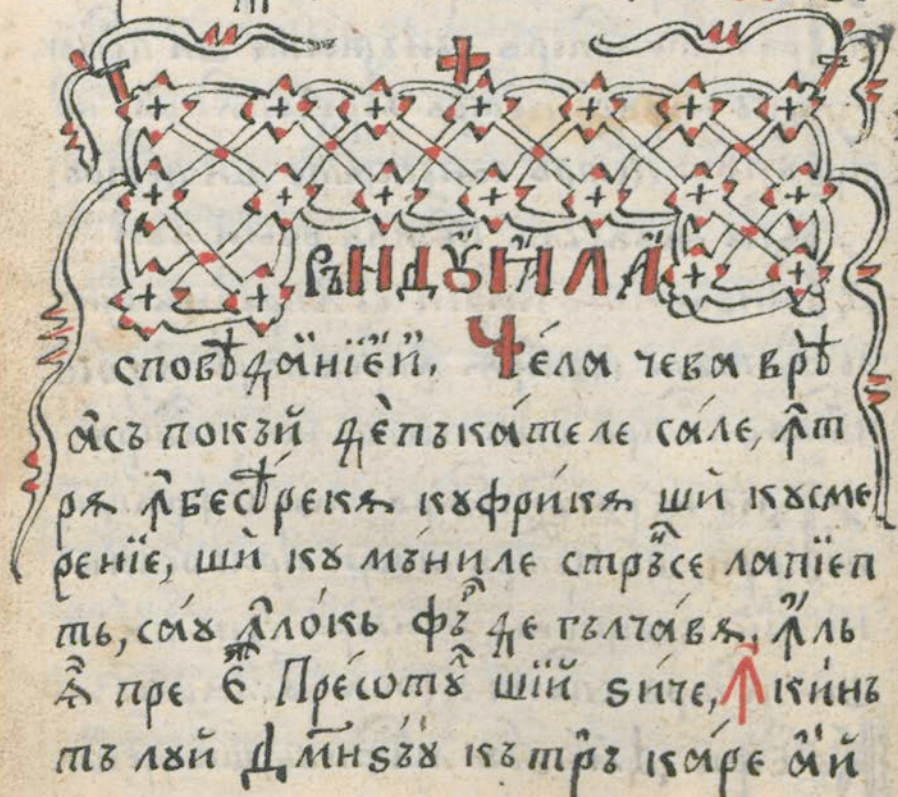 Рънду́ꙗла а҆
сповѣда́нїей. Че́ла чева врѣ
а҆съ покъй дѐ пъка́теле са́ле, ꙟ҆т
рѫ ꙟ҆ бесѣ́рекѫ ку фри́кѫ шѝ ку сме
ренїе, шѝ ку мъ́ниле стрꙟ҆се ла пїеп
ть, са́ꙋ ꙟ҆ ло́кь фъ де гълча́вѫ. ꙟ҆ль
пре Пре́ѡтꙋ шїй ѕи́че, ꙟ ки́нь
ть лꙋй Дм҃нѕъꙋ къ тръ ка́ре а҆й